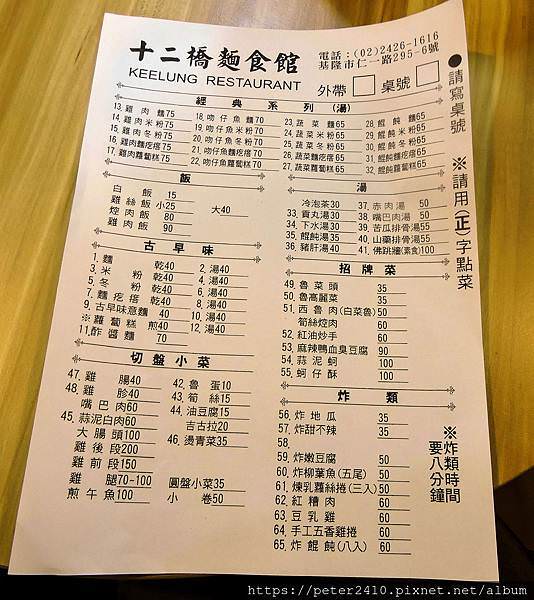 十二橋麵食館
KEELUNG RESTAURANT
電話:(02)2426-1616
基隆市仁一路295-6號
外帶
桌號
●請寫桌號
※請用(正)字點菜
經典系列(湯)
13.雞肉麵75
14.雞肉米粉75
15.雞肉冬粉75
16.雞肉麵疙瘩75
17.雞肉蘿蔔糕75
18.吻仔魚麵70
19.吻仔魚米粉70
20.吻仔魚冬粉70
21.吻仔魚麵疙瘩70
22.吻仔魚蘿蔔糕70
23.蔬菜麵65
24.蔬菜米粉65
25.蔬菜冬粉65
26.蔬菜麵疙瘩65
27.蔬菜蘿蔔糕65
28.餛飩麵65
29.餛飩米粉65
30.餛飩冬粉65
31.餛飩麵疙瘩65
32.餛飩蘿蔔糕65
飯
白飯15
雞絲飯小25
大40
焢肉飯80
雞肉飯90
湯
冷泡茶30
33.貢丸湯30
34.下水湯30
35.餛飩湯35
36.豬肝湯40
37.赤肉湯50
38.嘴巴肉湯50
39.苦瓜排骨湯55
40.山藥排骨湯55
41.佛跳牆(素食)100
古早味
1.麵乾40
2.湯40
3.米粉乾40
4.湯40
5.冬粉乾40
6.湯40
7.麵疙瘩乾40
8.湯40
9.古早味意麵40
10.湯40
※蘿蔔糕煎40
12.湯40
11.酢醬麵70
招牌菜
49.魯菜頭35
50.魯高麗菜35
51.西魯肉(白菜魯)50
筍絲焢肉60
52.紅油炒手60
53.麻辣鴨血臭豆腐90
54.蒜泥蚵100
55.蚵仔酥100
切盤小菜
47.雞腸40
48.雞胗40
嘴巴肉60
45.蒜泥白肉60
大腸頭100
雞後段200
雞前段150
雞腿70-100
煎午魚100
42.魯蛋10
43.筍絲15
44.油豆腐15
吉古拉20
46.燙青菜35
圓盤小菜35
小卷50
炸類
56.炸地瓜35
57.炸甜不辣35
58.
59.炸嫩豆腐50
60.炸柳葉魚(五尾)50
61.煉乳蘿絲捲(三入)50
62.紅糟肉60
63.豆乳雞60
64.手工五香雞捲60
65.炸餛飩(八入)60
※炸類時間要八分鐘
https://peter2410.pixnet.net/album